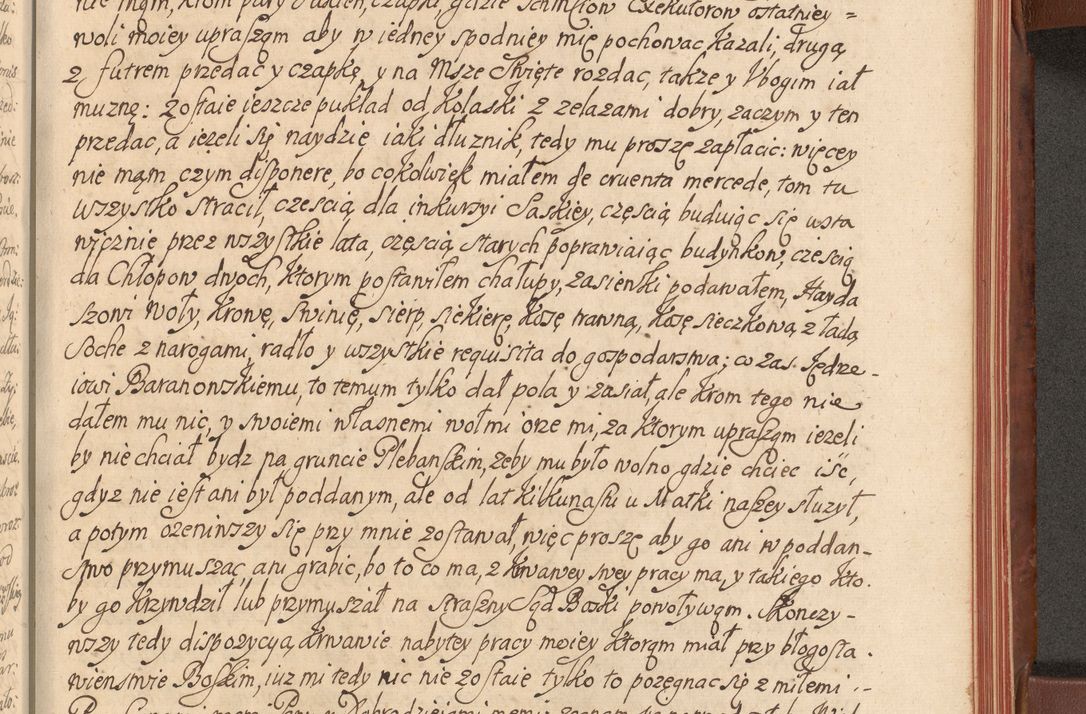 nie mąm, krom pary sukień, czapki, gdzie Ichmciow Exekutorow ostatniey =
woli moiey upraszam aby w iedney spodniey mię pochować kazali, drugą
z futrem przedać y czapkę, y na Msze Swięte rozdac, takze y Vbogim iał
muznę: zostaie ieszcze pukład od Kolaski z zelazami dobry, zaczym y ten
przedac, a iezeli się naydzie iaki dłuznik, tedy mu proszę zapłacic: więcey
nie mąm czym disponere, bo cokolwięk miałem de cruenta mercede, tom tu
wszystko stracił, częscią dla inkursyi Saskiey, częscią buduiąc się usta
wicznie przez wszystkie lata, częscią starych poprawiaiąc budynkow, częscią
dla Chłopow dwoch, ktorym postawiłem chałupy, zasienki podawałem, Hayda
szowi Woły, Krowę, Swinię, sierp, siekierę, kosę trawną, kosę sieczkową z ładą
Soche z narogami, radło y wszystkie requisita do gospodarstwa; co zas Jędrze-
iowi Baranowskiemu, to temum tylko dał pola y zasiał, ale krom tego nie
dałem mu nic, y swoiemi własnemi wołmi orze mi, za ktorym uprasząm iezeli
by nie chciał bydz na gruncie Plebanskim, zeby mu było wolno gdzie chciec iść,
gdyz nie iest ani był poddanym, ale od lat kilkunastu u Matki naszey słuzył,
a potym ozeniwszy się przy mnie zostawał, więc proszę aby go ani w poddan-
stwo przymuszac, ani grabic, bo to co ma, z krwawey swey pracy ma, y takiego kto.
by go krzywdził lub przymuszał na straszny Sąd Boski powoływąm. Skonczy-
wszy tedy dispozycyą krwawie nabytey pracy moiey ktorąm miał przy błogosła.
wienstwie Boskim, iuz mi tedy nic nie zostaie tylko to pozęgnac się z miłemi